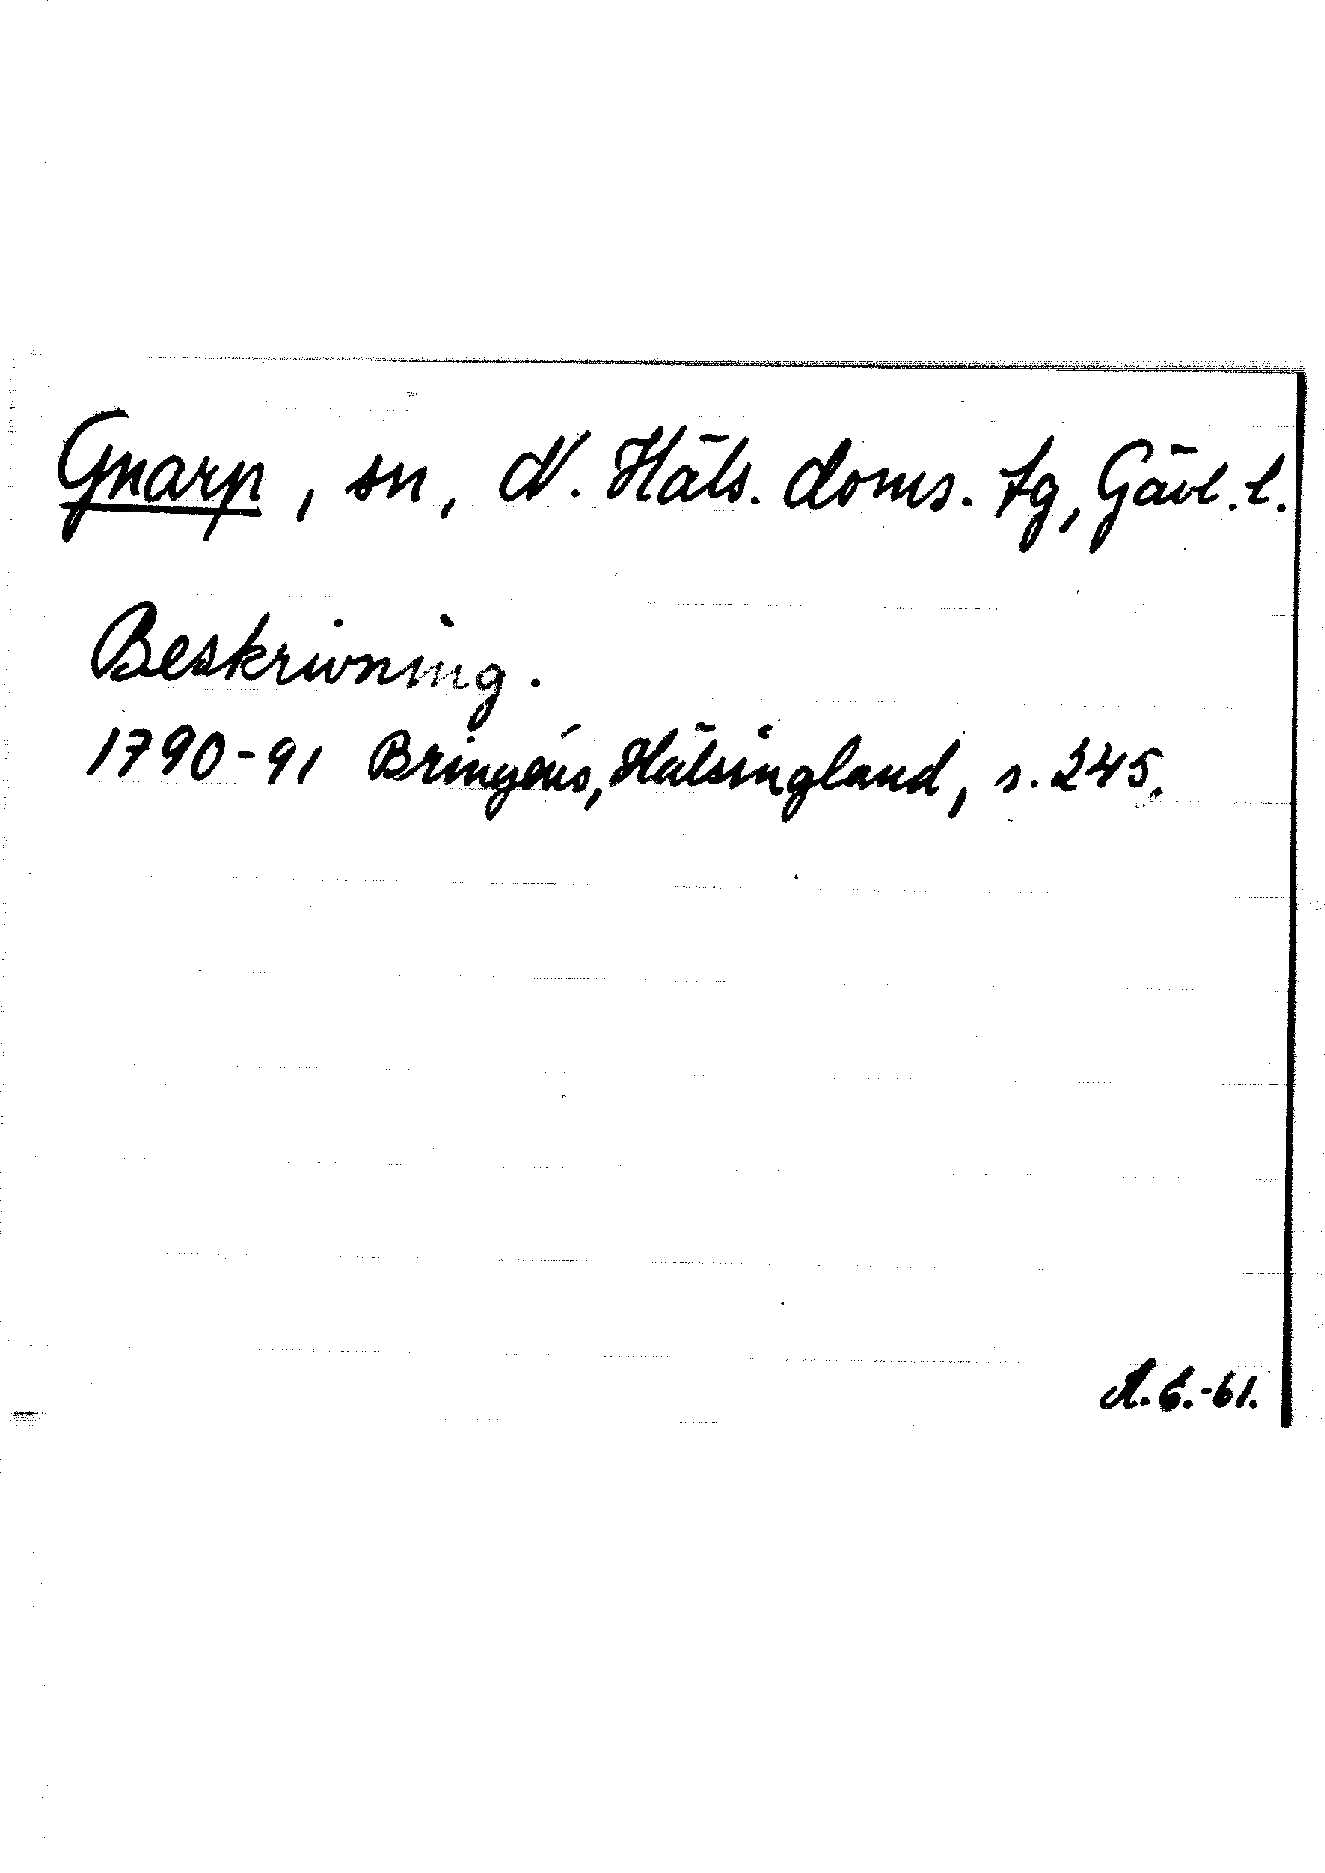 Gnarp, sn, N. Häls. doms. tg, Gävl. l.
Beskrivning.
1790-91 Bringéus, Hälsingland, s. 245.
A.E.-61.